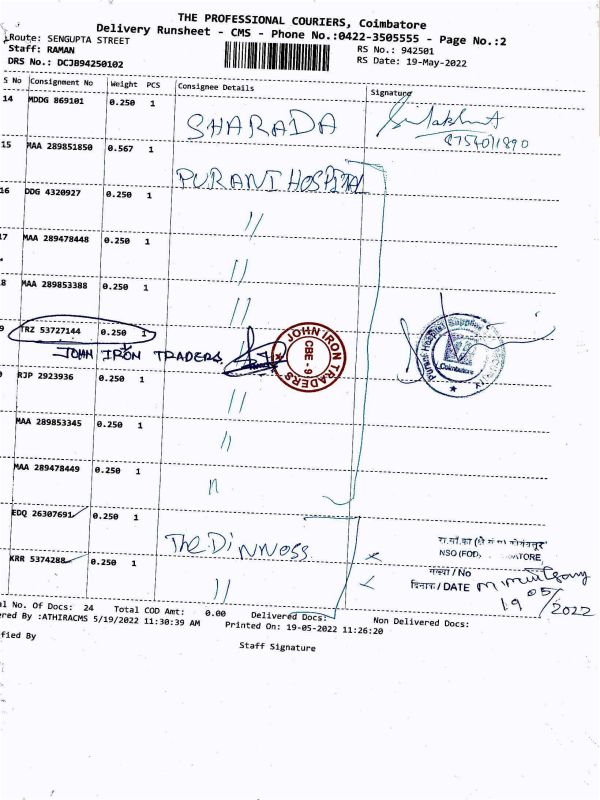 THE PROFESSIONAL COURIERS, Coimbatore
Delivery Runsheet - CMS - Phone No.:0422-3505555 - Page No.:2
Route: SENGUPTA STREET
RS No.: 942501
Staff: RAMAN
RS Date: 19-May-2022
DRS No.: DCJB94250102
S No Consignment No Weight PCS Consignee Details Signature
14 MDDG 869101 0.250 1 SHARADA
8754011890
15 MAA 289851850 0.567 1 PURANI HOSPITAL
16 DDG 4320927 0.250 1 //
17 MAA 289478448 0.250 1 //
8 MAA 289853388 0.250 1 //
9 TRZ 53727144 0.250 1
JOHN IRON TRADERS
JOHN IRON TRADERS
CBE - 9
Purani Hospital Supplies
Coimbatore
RJP 2923936 0.250 1 //
MAA 289853345 0.250 1 //
MAA 289478449 0.250 1 //
EDQ 26307691 0.250 1 The DiNNoss
NSO (FOD),
KRR 5374288 0.250 1 //
संख्या / No
दिनांक / DATE
19/05/2022
al No. Of Docs: 24 Total COD Amt: 0.00 Delivered Docs: Non Delivered Docs:
ered By :ATHIRACMS 5/19/2022 11:30:39 AM Printed On: 19-05-2022 11:26:20
ified By
Staff Signature